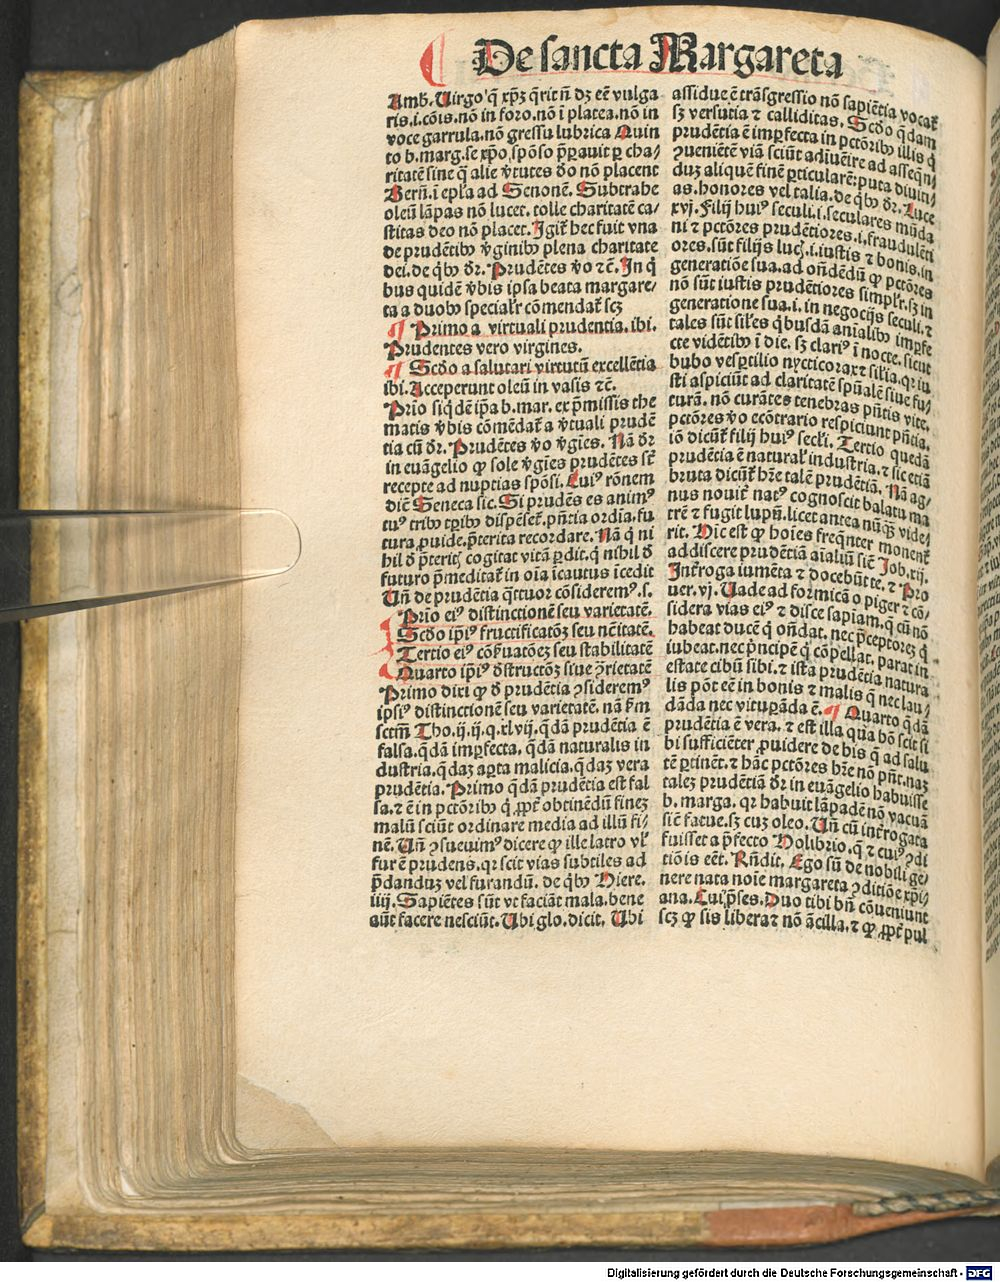 De sancta Margareta
Amb. Uirgo q̄ xp̄ꝫ q̄rit nō dꝫ eē vulga
ris.i.cōis.nō in foro.nō ī platea.nō in
voce garrula.nō gressu lubrica Quin
to b.marg.se xp̄o sponso p̄parauit ꝑ cha/
ritatē sine q̄ alie v̓tutes deo nō placent
Bern̄.ī epl̄a ad Senonē. Subtrahe
oleū lāpas nō lucet.tolle charitatē ca/
stitas deo nō placet. Igit̄ hec fuit vna
de prudētibꝫ v̓ginibꝫ plena charitate
dei.de qͥbꝫ dr̄. Prudētes v̓o ⁊c̄. In qͥ
bus quidē v̓bis ipsa beata margare/
ta a duobꝫ specialr̄ cōmendat̄ scꝫ
¶ Primo a virtuali prudentia.ibi.
Prudentes vero virgines.
¶ Scd̄o a salutari virtutū excellētia
ibi. Acceperunt oleū in vasis ⁊c̄.
Prīo siqͥdē ip̄a b.mar.ex p̄missis the
matis v̓bis cōmēdat̄ a v̓tuali prudē
tia cū dr̄. Prudētes v̓o v̓gīes. Nā dr̄
in euāgelio ꝙ sole v̓gīes prudētes st̄
recepte ad nuptias spōsi. Cuiꝰ rōnem
dic̄ Seneca sic. Si prudēs es animꝰ
tuꝰ tribꝫ tꝑibꝫ dispēset̄.pn̄tia ordīa.fu
tura ꝓuide.p̄terita recordare. Nā q̄ ni
hil d̓ p̄terit̄ cogitat vitā ꝑdit.q̄ nihil d̓
futuro p̄meditat̄ in oīa īcautus īcedit
Un̄ de prudētia q̄ttuor cōsideremꝰ.s.
Prīo eiꝰ distinctionē seu varietatē.
Scd̄o ip̄iꝰ fructificatōꝫ seu nc̄itatē.
Tertio eiꝰ cōẜuatōeꝫ seu stabilitatē
Quarto ip̄iꝰ d̓structōꝫ siue ꝯ̓rietatē
Primo dixi ꝙ d̓ prudētia ꝯsideremꝰ
ipsiꝰ distinctionē seu varietatē.nā ẜm
sctm̄ Tho.ij.ij.q.xlvij.q̄dā prudētia ē
falsa.q̄dā imꝑfecta.q̄dā naturalis in
dustria.q̄daꝫ aꝑta malicia.q̄daꝫ vera
prudētia. Primo q̄dā prudētia est fal
sa.⁊ ē in pctōribꝫ qͥ ꝓpt̄ obtinēdū fineꝫ
malū sciūt ordinare media ad illū fi/
nē. Un̄ ꝯsueuimꝰ dicere ꝙ ille latro vl̓
fur ē prudens.qꝛ scit vias subtiles ad
p̄danduꝫ vel furandū. de qͥbꝫ Hiere.
iiij. Sapiētes sūt vt faciāt mala.bene
aūt facere nesciūt. Ubi glo.dicit. Ubi
assidue ē trāsgressio nō sapiētia vocat̄
sꝫ versutia ⁊ calliditas. Scd̄o q̄dam
prudētia ē imꝑfecta in pctōribꝫ illis qͥ
ꝯueniētē viā sciūt adiuēire ad asseqn̄/
duꝫ aliquē finē ꝑticularē:puta diuiti/
as.honores vel talia.de qͥbꝫ dr̄. Luce
xvj. Filij huiꝰ seculi.i.seculares mūda
ni ⁊ pctōres prudētiores.i.fraudulēti
ores.sūt filijs luc̄.i.iustis ⁊ bonis.in
generatiōe sua.ad oñdēdū ꝙ pctōres
nō sūt iustis prudētiores simplr̄.sꝫ in
generatione sua.i.in negocijs seculi.⁊
tales sūt sil̓es qͥbusdā anīalibꝫ imꝑfe
cte vidētibꝫ ī die.sꝫ clariꝰ ī nocte.sicut
bubo vespertilio nycticorax ⁊ sil̓ia.qꝛ iu
sti aspiciūt ad claritatē spūalē siue fu/
turā.nō curātes tenebras pn̄tis vite.
pctōres v̓o ecōtrario respiciunt pn̄tia.
iō dicūt̄ filij huiꝰ secl̓i. Tertio quedā
prudētia ē natural̓ industria.⁊ sic etiā
bruta dicūt̄ hr̄e talē prudētiā. Nā ag/
nus nouit natꝰ cognoscit balatū ma
trē ⁊ fugit lupū.licet antea nūꝙ vide/
rit. Hic est ꝙ hoīes freqn̄ter monent̄
addiscere prudētiā aīaliū sic̄ Job.xij.
Interroga iumēta ⁊ docebūt te.⁊ Pro
uer.vj. Uade ad formicā o piger ⁊ cō/
sidera vias eiꝰ ⁊ disce sapiam.q̄ cū nō
habeat ducē qͥ oñdat.nec p̄ceptoreꝫ qͥ
iubeat.nec pͥncipē qͥ cōpellat.parat in
estate cibū sibi.⁊ ista prudētia natura
lis pōt eē in bonis ⁊ malis q̄ nec lau/
dāda nec vituꝑāda ē. ¶ Quarto q̄dā
prudētia ē vera.⁊ est illa qua hō scit si
bi sufficiēter ꝓuidere de his q̄ ad salu
tē ꝑtinēt.⁊ hāc pctōres hr̄e nō pn̄t.naꝫ
taleꝫ prudētiā dr̄ in euāgelio habuisse
b.marga.qꝛ habuit lāpadē nō vacuā
sic̄ fatue.sꝫ cuꝫ oleo. Un̄ cū int̄rogata
fuisset a p̄fecto Holibrio.q̄ ⁊ cuiꝰ ꝯdi
tiōis eēt. Rn̄dit. Ego sū de nobili ge/
nere nata noīe margareta ꝯditiōe xp̄i/
ana. Cui p̄ses. Duo tibi bn̄ cōueniunt
scꝫ ꝙ sis libera ⁊ nō ācilla.⁊ ꝙ ꝓpt̄ pul
Digitalisierung gefördert durch die Deutsche Forschungsgemeinschaft - DFG